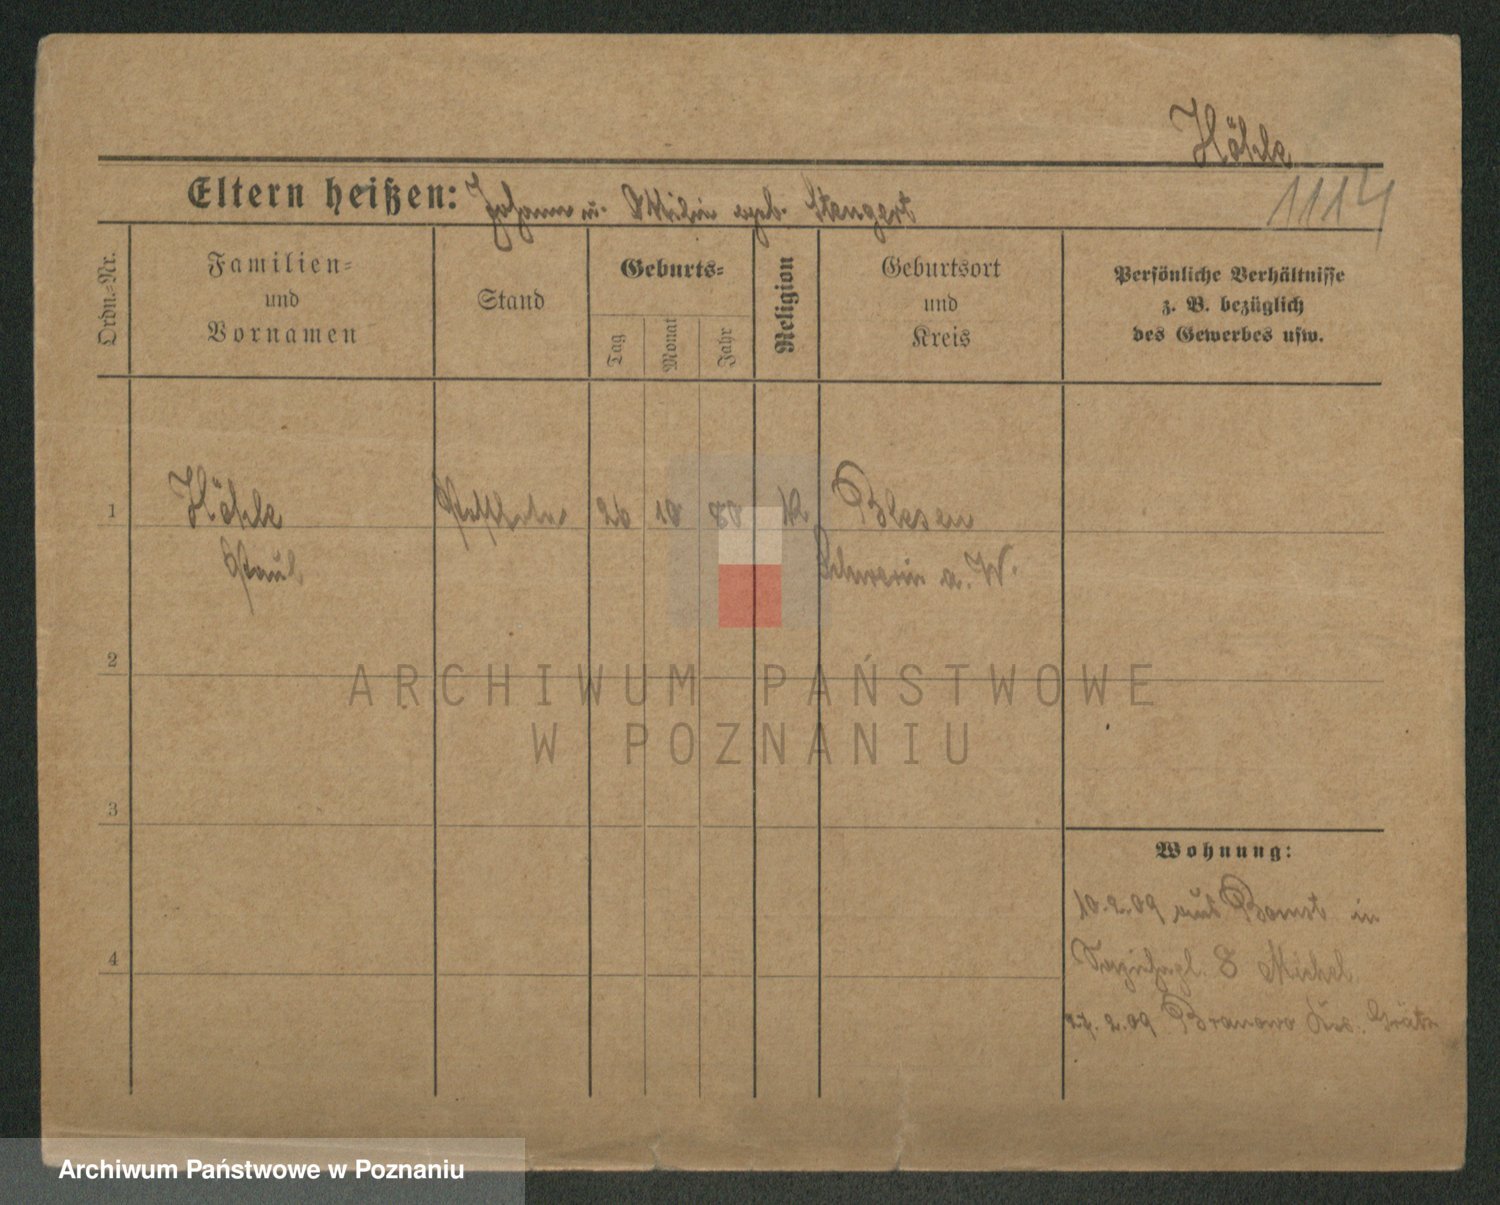 Höhle
Eltern heißen: Johann u. geb. Stengert
1114
Ordn.=Nr.
Familien=
und
Vornamen
Stand
Geburts=
Tag
Monat
Jahr
Religion
Geburtsort
und
Kreis
Persönliche Verhältnisse
z. B. bezüglich
des Gewerbes usw.
1 Höhle 26 10 80 K Blesen
Paul Schwerin a. W.
2
3
4
Wohnung:
10.2.09 aus Bomst in
8 Michel
27. 2. 09 Kr. Grätz
ARCHIWUM PAŃSTWOWE
W POZNANIU
Archiwum Państwowe w Poznaniu